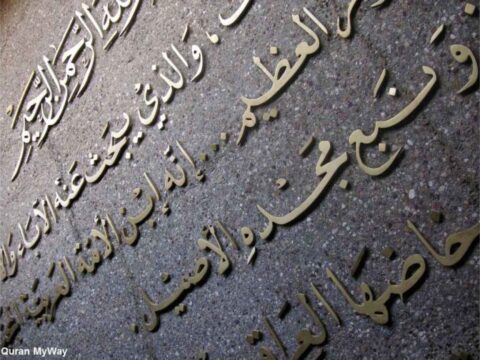 الله الرحمن الرحيم
، وَالذيْ يبحث عَنه الآباء
العظيم ... إنه ابن الأمة العربية
وَ نبع مَجْدهِ الأصيْل.
خاضها
Quran MyWay